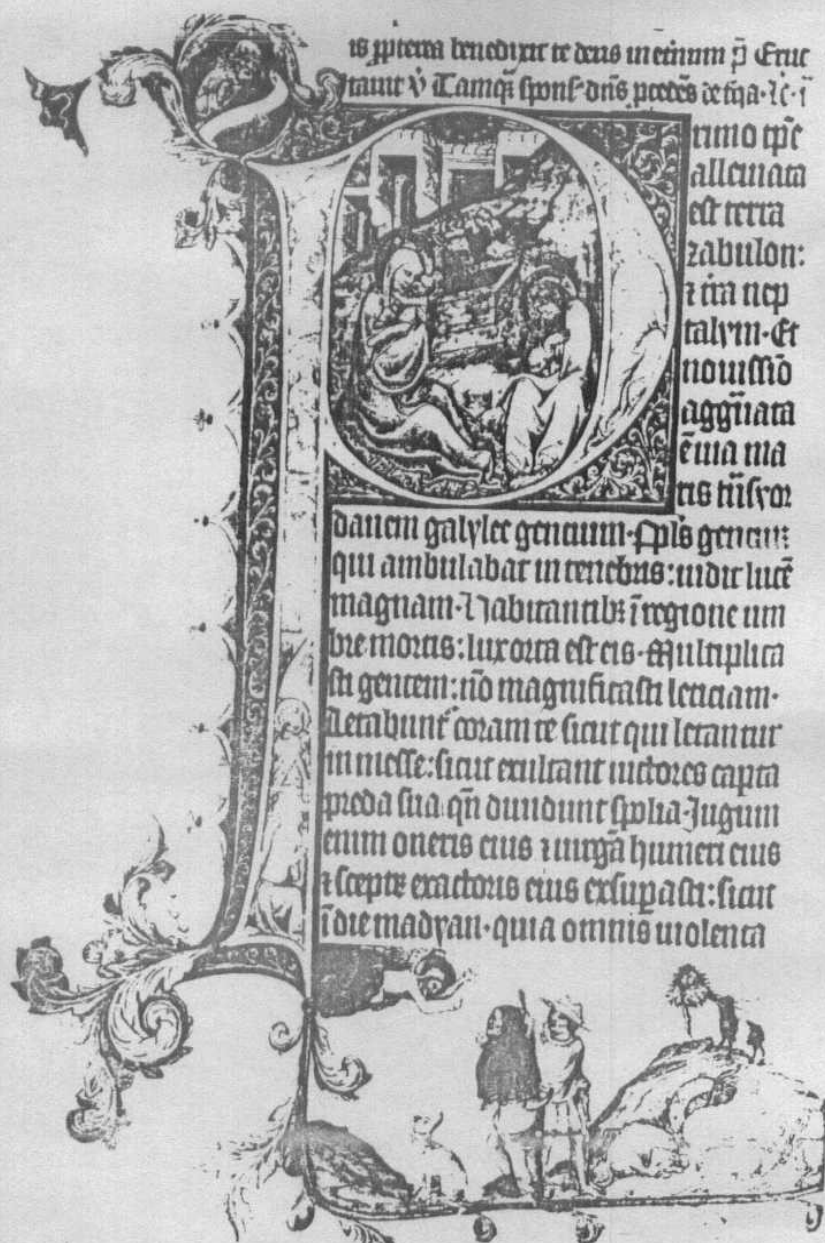 is ꝓpterea benedixit te deus in etn̄um p̄ Eruc
tauit v̓ Tamq̄ᷓ spons᷒ dn̄s ꝓcedēs de t̄ꝑa · ⁊c · ī
rimo tp̄e
alleuiata
est terra
zabulon:
⁊ t̄ra nep
talym · Et
nouissīo
aggͣuata
ē uia ma
ris tn̄s yor
danem galylee gencium · Ppl̄s gencium
qui ambulabat in tenebris: uidit lucē
magnam · Habitantibꝫ ī regione um
bre mortis: lux orta est eis · Multiplica
sti gentem: nō magnificasti leticiam ·
Letabunt᷑ coram te sicut qui letantur
in messe: sicut exultant uictores capta
preda sua qn̄ diuidunt spolia · Jugum
enim oneris eius ⁊ uirgā humeri eius
⁊ sceptꝝ exactoris eius exsuꝑasti: sicut
ī die madyan · quia omnis uiolenta